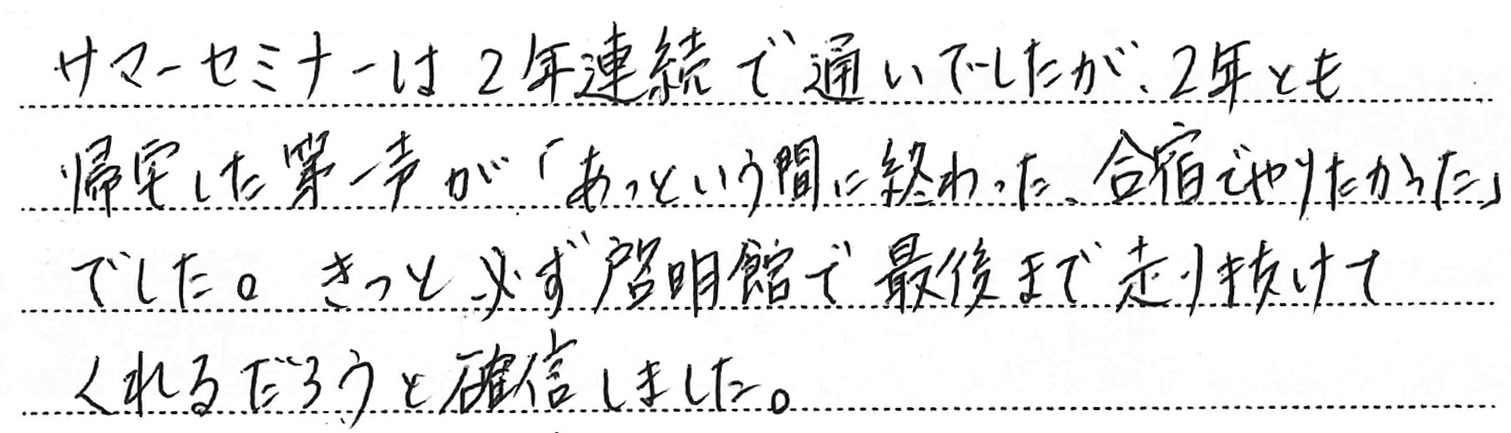 サマーセミナーは2年連続で通いでしたが、2年とも
帰宅した第一声が「あっという間に終わった、合宿でやりたかった」
でした。きっと必ず啓明館で最後まで走り抜けて
くれるだろうと確信しました。